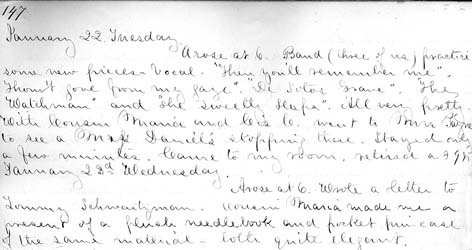 147
January 22. Tuesday
Arose at 6. Band (three of us) practice
some new pieces - Vocal. "Then you'll remember me",
"Thou'rt gone from my gaze". De Sotos Grave". "The
Watchman" and "She Sweetly Sleeps". All very pretty
With Cousin Maria and Co. went to Mrs
to see a Daniels stopping there. Stayed only
a few minutes. Came to my room, retired a 9½
January 23d Wednesday.
Arose at 6. Wrote a letter to
Tommy Schwartzman. Cousin Maria made me a
present of a plush needlebook and pocket pin-case
of the same material - both quite elegant.